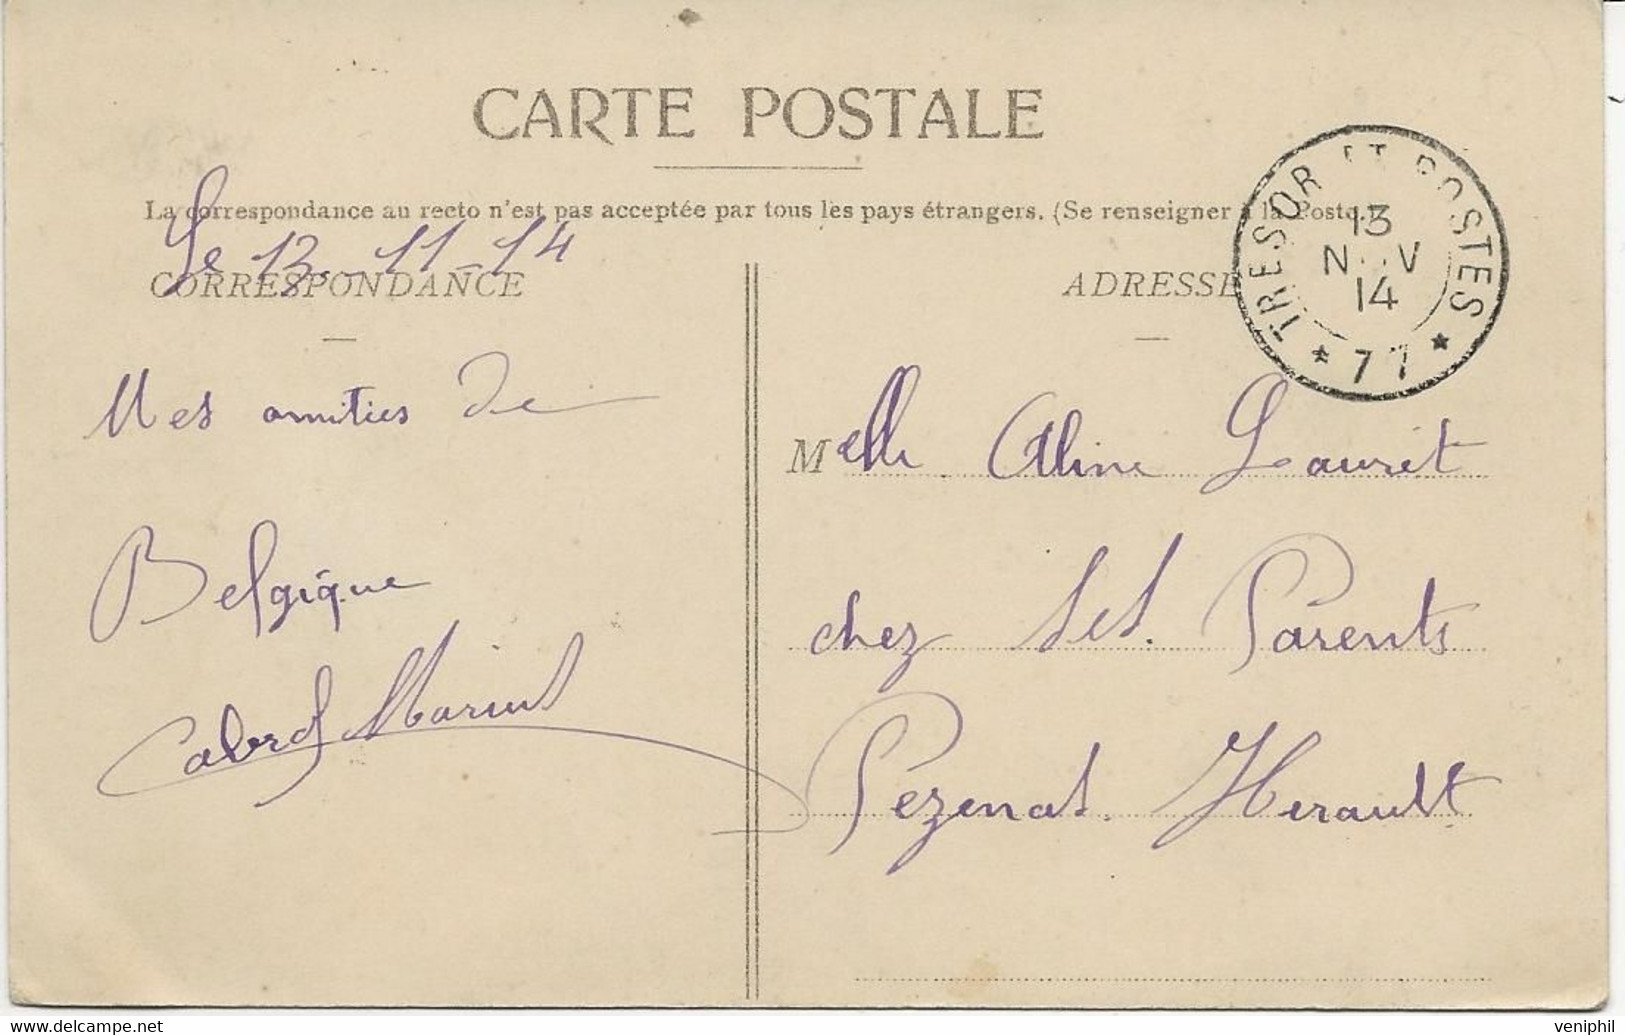 CARTE POSTALE
La correspondance au recto n'est pas acceptée par tous les pays étrangers. (Se renseigner à la Poste.)
Le 13 - 11 - 14
CORRESPONDANCE
ADRESSE
TRESOR ET POSTES
13
NOV
14
* 77 *
Mes amitiés de
Belgique
Cabrol Marius
Melle Aline Lauret
chez ses Parents
Pézenas. Hérault
veniphil